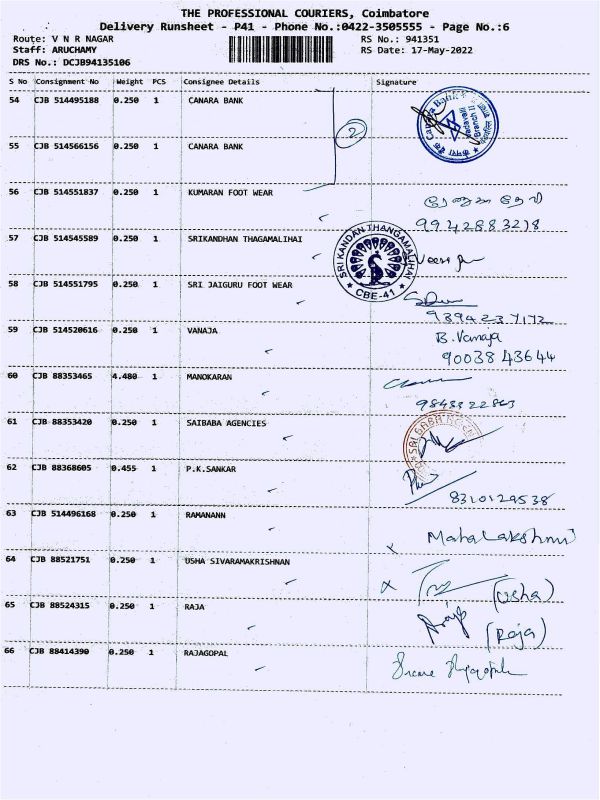 THE PROFESSIONAL COURIERS, Coimbatore
Delivery Runsheet - P41 - Phone No.:0422-3505555 - Page No.:6
Route: V N R NAGAR RS No.: 941351
Staff: ARUCHAMY RS Date: 17-May-2022
DRS No.: DCJB94135106
S No Consignment No Weight PCS Consignee Details Signature
54 CJB 514495188 0.250 1 CANARA BANK
Canara Bank
Branch II
2
55 CJB 514566156 0.250 1 CANARA BANK
56 CJB 514551837 0.250 1 KUMARAN FOOT WEAR
9942883218
57 CJB 514545589 0.250 1 SRIKANDHAN THAGAMALIHAI
SRI KANDAN THANGAMALIHAI
★ CBE-41 ★
58 CJB 514551795 0.250 1 SRI JAIGURU FOOT WEAR
9394237172
59 CJB 514520616 0.250 1 VANAJA
B. Vanaja
90038 43644
60 CJB 88353465 4.480 1 MANOKARAN
61 CJB 88353420 0.250 1 SAIBABA AGENCIES
62 CJB 88368605 0.455 1 P.K.SANKAR
8310129538
63 CJB 514496168 0.250 1 RAMANANN
x Mahalakshmi
64 CJB 88521751 0.250 1 USHA SIVARAMAKRISHNAN
x (Usha)
65 CJB 88524315 0.250 1 RAJA
(Raja)
66 CJB 88414390 0.250 1 RAJAGOPAL